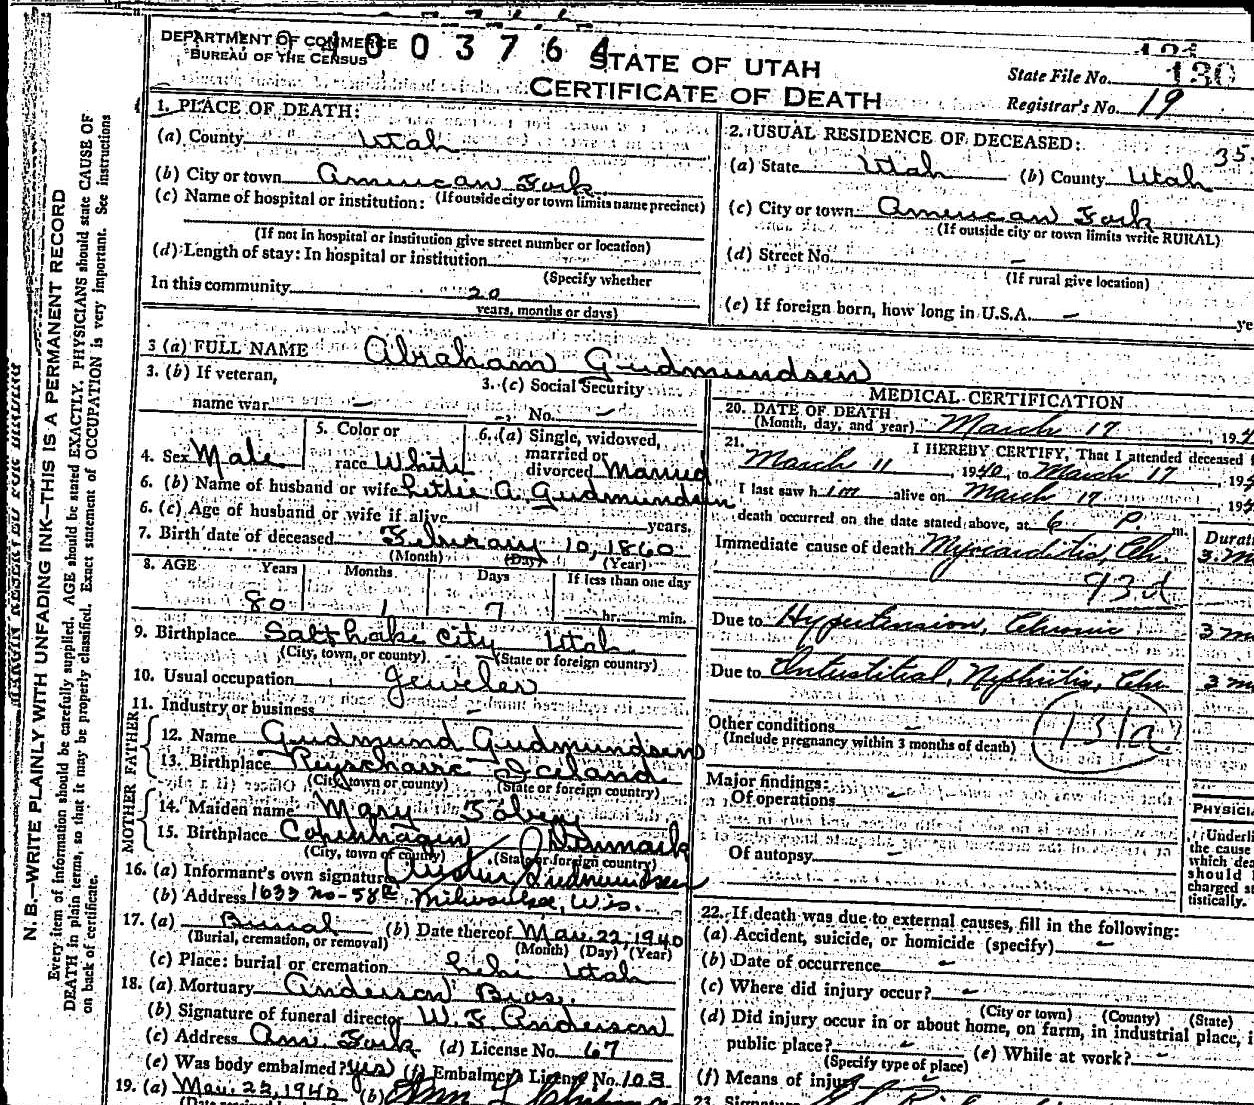 DEPARTMENT OF COMMERCE
BUREAU OF THE CENSUS
0 0 3 7 6 4
STATE OF UTAH
CERTIFICATE OF DEATH
State File No. 130
Registrar's No. 19
1. PLACE OF DEATH:
(a) County Utah
(b) City or town American Fork
(If outside city or town limits name precinct)
(c) Name of hospital or institution:
(If not in hospital or institution give street number or location)
(d) Length of stay: In hospital or institution
(Specify whether
In this community 20
years, months or days)
2. USUAL RESIDENCE OF DECEASED:
35
(a) State Utah (b) County Utah
(c) City or town American Fork
(If outside city or town limits write RURAL)
(d) Street No. –
(If rural give location)
(e) If foreign born, how long in U.S.A. – ye
3 (a) FULL NAME Abraham Gudmundsen
3. (b) If veteran,
name war –
3. (c) Social Security
No. –
4. Sex Male
5. Color or
race White
6. (a) Single, widowed,
married or
divorced Married
6. (b) Name of husband or wife A. Gudmundsen
6. (c) Age of husband or wife if alive years.
7. Birth date of deceased February 10, 1860
(Month) (Day) (Year)
8. AGE Years Months Days If less than one day
80 1 7 hr. min.
9. Birthplace Salt Lake City Utah
(City, town, or county) (State or foreign country)
10. Usual occupation Jeweler
11. Industry or business –
FATHER
12. Name Gudmund Gudmundsen
13. Birthplace Iceland
(City, town or county) (State or foreign country)
MOTHER
14. Maiden name Mary
15. Birthplace Copenhagen Denmark
(City, town or county) (State or foreign country)
16. (a) Informant's own signature Gudmundsen
(b) Address 1633 No - 58th Milwaukee, Wis.
17. (a) Burial (b) Date thereof Mar. 22, 1940
(Burial, cremation, or removal) (Month) (Day) (Year)
(c) Place: burial or cremation Lehi Utah
18. (a) Mortuary Anderson Bros.
(b) Signature of funeral director W. F. Anderson
(c) Address Am. Fork (d) License No. 67
(e) Was body embalmed? yes (f) Embalmer's License No. 103
19. (a) Mar. 22, 1940 (b)
MEDICAL CERTIFICATION
20. DATE OF DEATH
(Month, day, and year) March 17, 194
21. I HEREBY CERTIFY, That I attended deceased f
March 11 1940, to March 17 194
I last saw him alive on March 17 194
death occurred on the date stated above, at 6 P m.
Durat
Immediate cause of death Myocarditis, Chr. 3 m
93d
Due to Hypertension, Chronic 3 m
Due to Interstitial Nephritis, Chr 3 m
131a
Other conditions –
(Include pregnancy within 3 months of death)
Major findings:
Of operations –
Of autopsy –
PHYSICI
Underli
the cause
which dea
should
charged st
tistically.
22. If death was due to external causes, fill in the following:
(a) Accident, suicide, or homicide (specify) –
(b) Date of occurrence –
(c) Where did injury occur? –
(City or town) (County) (State)
(d) Did injury occur in or about home, on farm, in industrial place, i
public place? – (e) While at work? –
(Specify type of place)
(f) Means of injury
23. Signature
MARGIN RESERVED FOR BINDING
N. B.—WRITE PLAINLY WITH UNFADING INK—THIS IS A PERMANENT RECORD
Every item of information should be carefully supplied. AGE should be stated EXACTLY. PHYSICIANS should state CAUSE OF
DEATH in plain terms, so that it may be properly classified. Exact statement of OCCUPATION is very important. See instructions
on back of certificate.